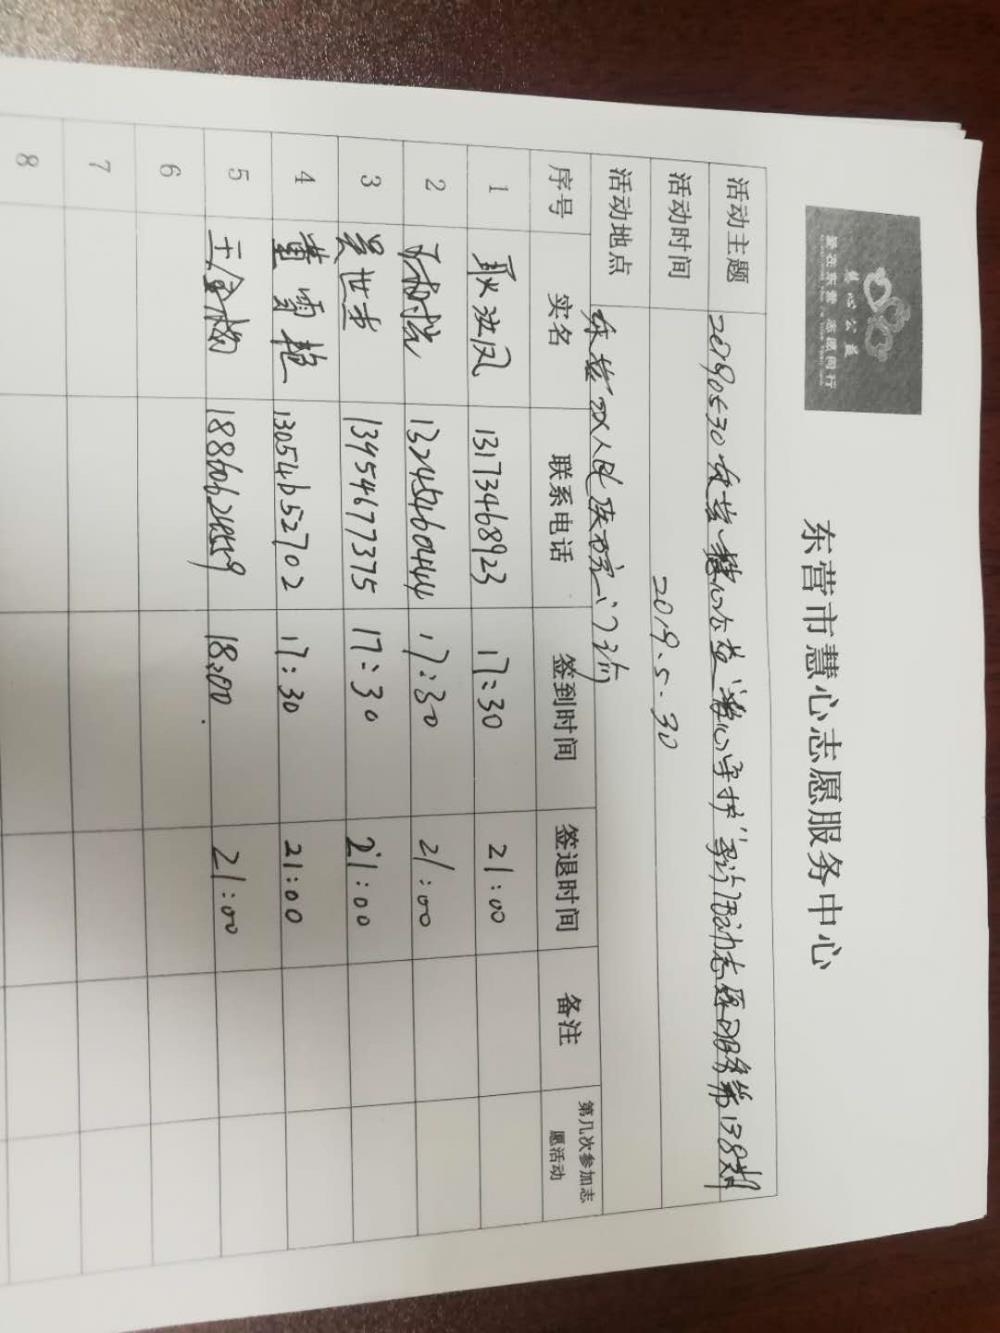 慧心公益
爱在东营 志愿同行
东营市慧心志愿服务中心
活动主题 20190530东营慧心公益" 心守护"导诊活动志愿服务第138期
活动时间 2019.5.30
活动地点 东营 人民医院门诊
序号 实名 联系电话 签到时间 签退时间 备注 第几次参加志愿活动
1 耿进凤 13173468923 17:30 21:00
2 17:30 21:00
3 吴世 13954677375 17:30 21:00
4 黄雪艳 13054652702 17:30 21:00
5 王金梅 18:00 21:00
6
7
8